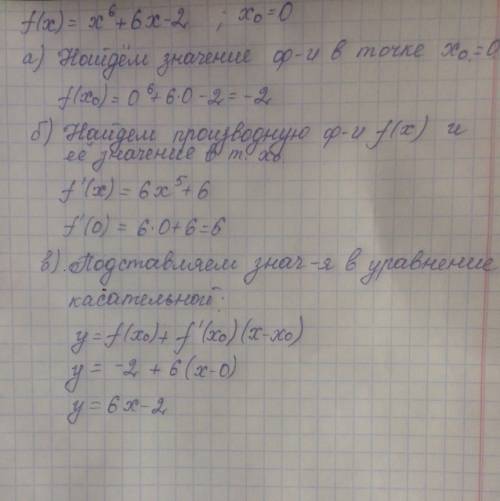 f(x) = x⁶+6x-2 ; x₀=0
а) Найдём значение ф-и в точке x₀=0
f(x₀) = 0⁶+6·0-2 = -2
б) Найдем производную ф-и f(x) и
её значение в т. x₀
f'(x) = 6x⁵+6
f'(0) = 6·0+6=6
в). Подставляем знач-я в уравнение
касательной:
y = f(x₀)+ f'(x₀)(x-x₀)
y = -2 + 6(x-0)
y = 6x-2